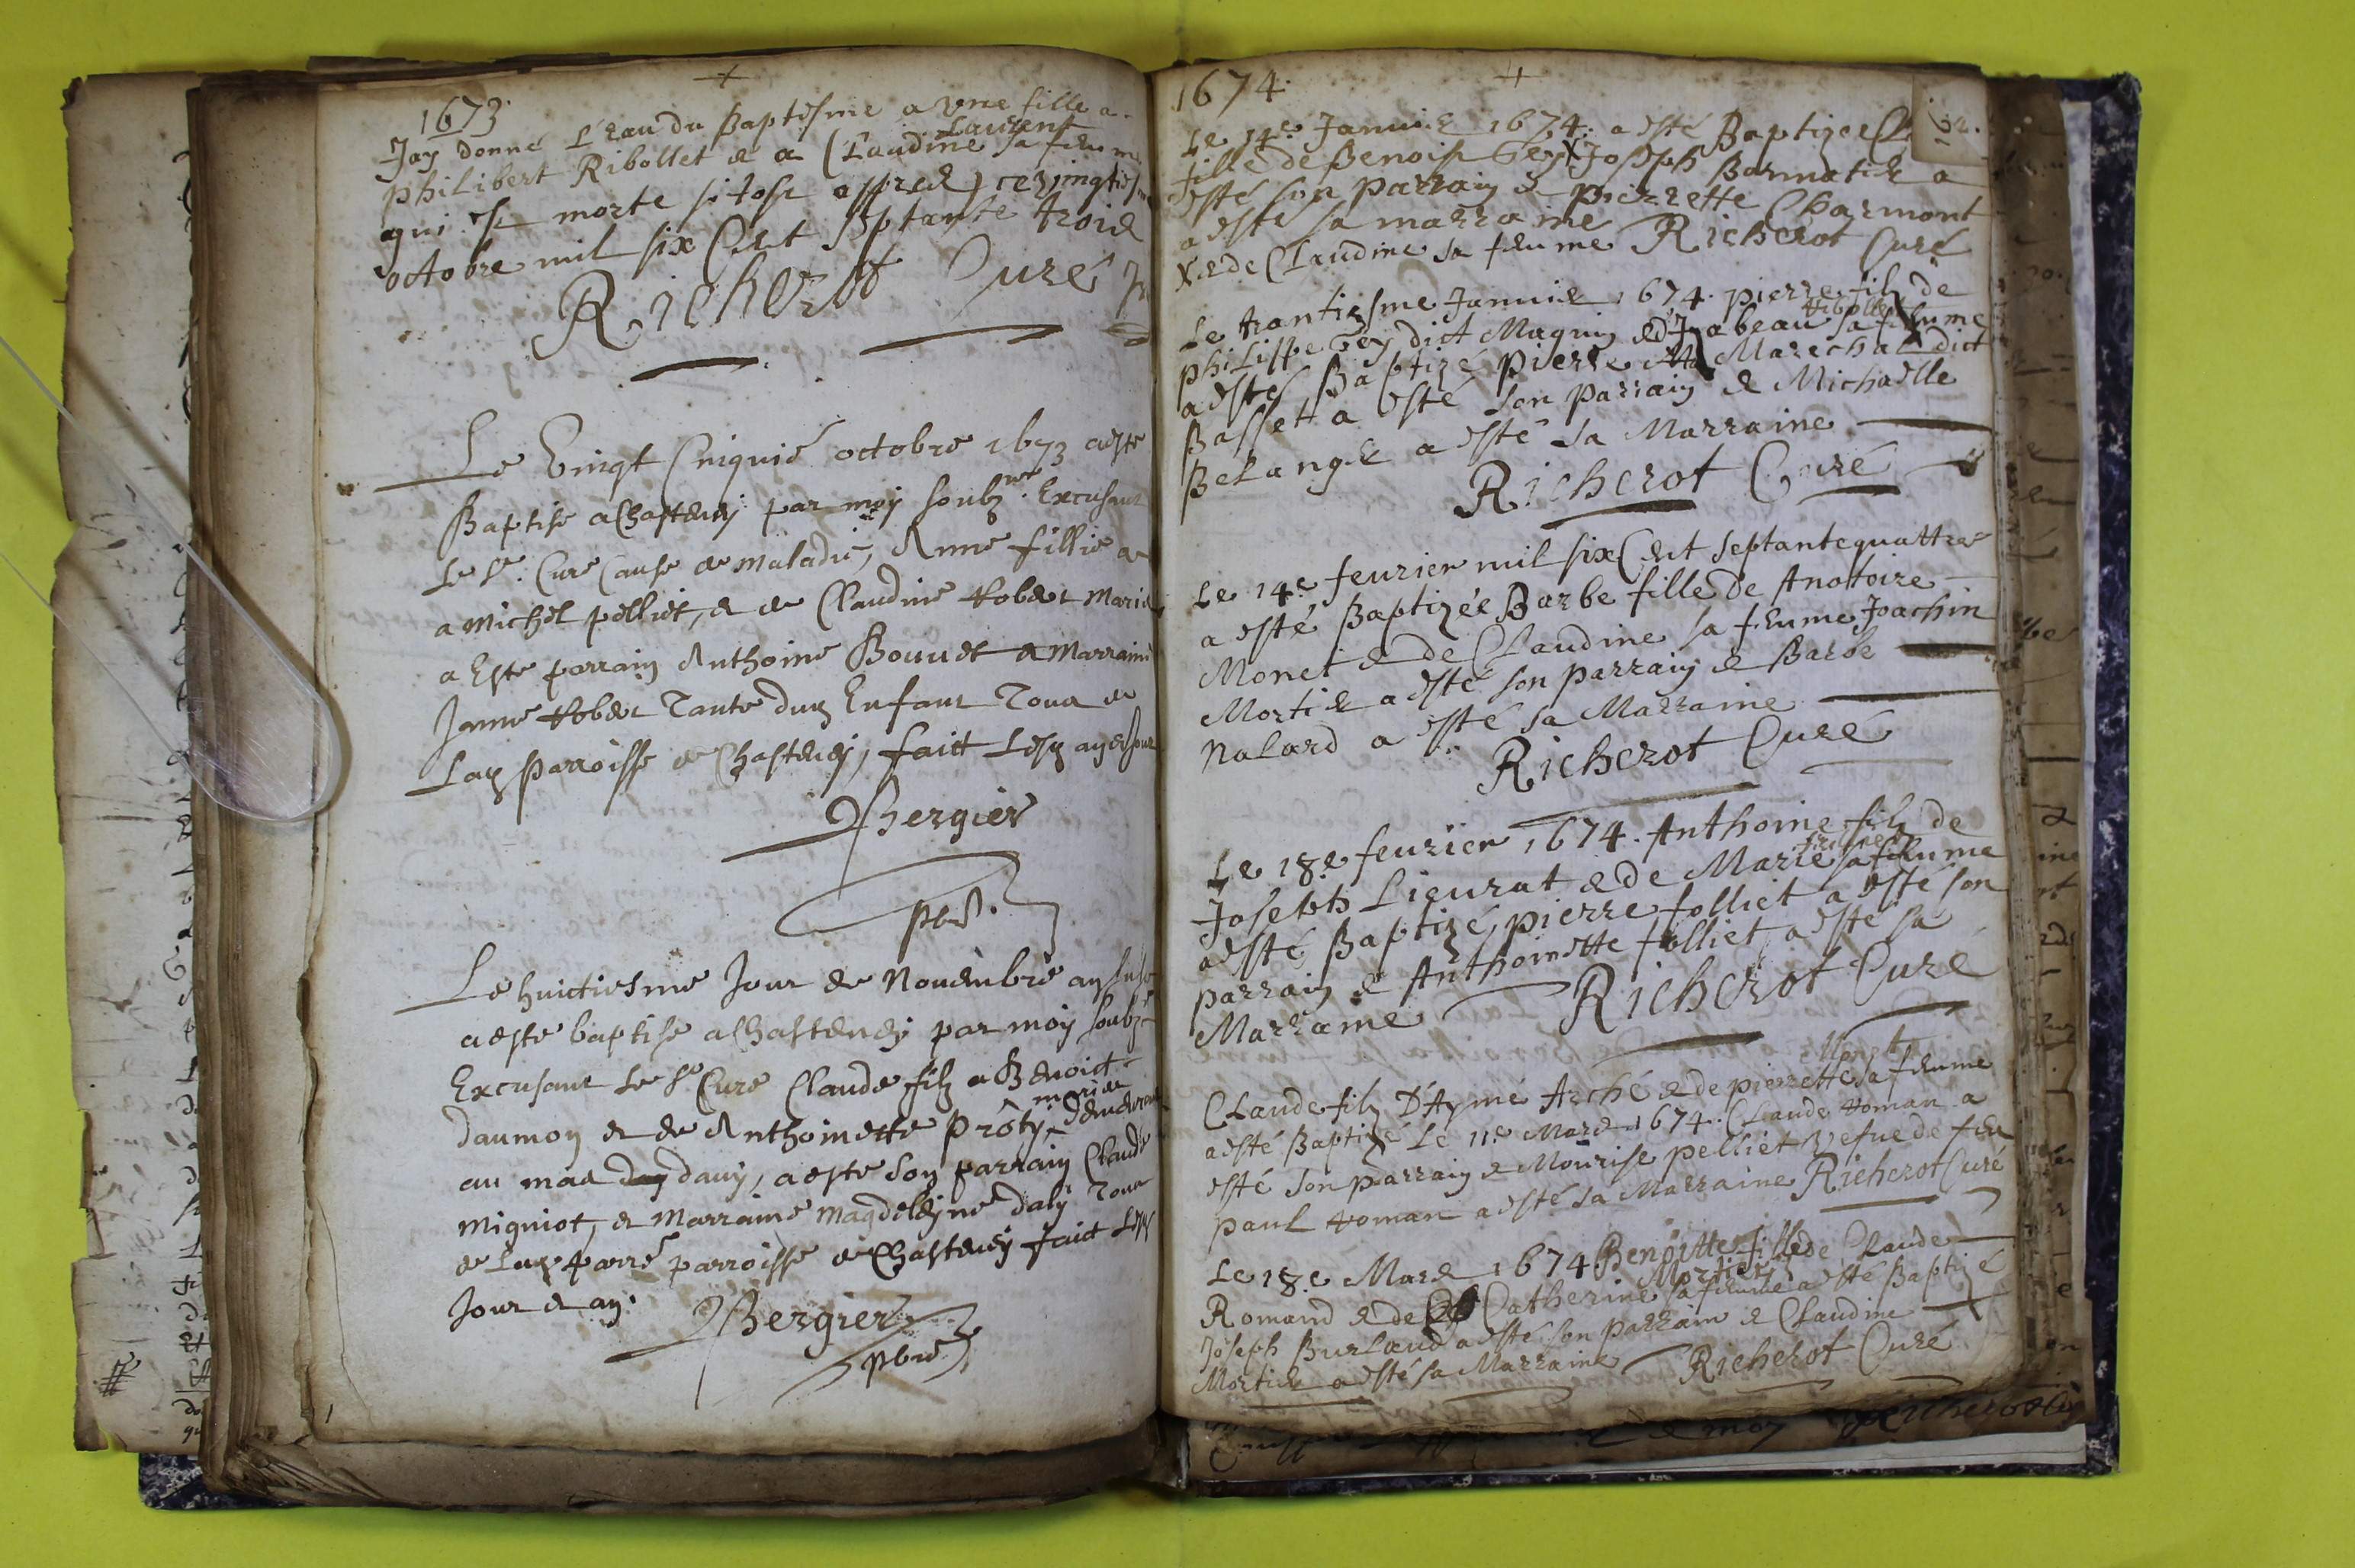 1673.
Jay donné L'eau du Baptesme a vne fille a
Laurent
philibert Ribollet & a Claudine sa femme
qui est morte sitost appres ce vingtiesme
octobre mil six Cent septante trois
Richerot Curé
Le Vingt Cinquié octobre 1673 a esté
Baptise a Chastenay par moy soubz né Excusant
Le Sr. Curé Cause de maladie, Anne fillie a
a Michel pelliet, & de Claudine Robert Mariés
a Este parrain Anthoine Bouuet & Marraine
Janne Robert Tante dud Enfant Tous de
Lad Parroisse de Chastenay, faict Lesd an & Jour
Bergier
pbre.
Le huictiesme Jour de Nouembre an susd
a este baptise a Chastenay par moy soubzé
Excusant Le Sr Curé Claude filz a Benoict
mariés
daumon & de Anthoinette Prôty demeurant
au mas davy, a este son parrain Claude
Migniot, & Marraine Magdeleyne daly Tous
de Lad parre parroisse de Chastenay faict Lesd
Jour & an.
Bergier
pbre
1674.
Le 14e Januier 1674. a esté Baptizee
fille de Benoist Gey X Joseph Barnatier a
esté son parrain & pierrette Charmont
a esté sa marraine
X. & de Claudine sa femme Richerot Curé
Le trantiesme Januier 1674. pierre filz de
Ribollet
philippe Gey dict Maguin & d'Izabeau sa femme
a esté Baptizé pierre Marechal dict
Basset a esté son parrain & Michaelle
Belanger a esté sa Marraine
Richerot Curé
Le 14e feurier mil six Cent septante quattre
a esté Baptizée Barbe fille de Anotoire
Monet & de Claudine sa femme Joachin
Mortier a esté son parrain & Barbe
Nalard a esté sa Marraine
Richerot Curé
Le 18e feurier 1674. Anthoine filz de
Joseph Lieurat & de Marie sa femme
a esté Baptizé, pierre folliet a esté son
parrain & Anthoinette folliet a esté sa
Marraine Richerot Curé
Claude filz D'Aymé Arché & de pierrette sa femme
a esté Baptizé Le 11e Mars 1674. Claude Roman a
esté son parrain & Mourise pelliet vefue de feu
paul Roman a esté sa Marraine Richerot Curé
Le 18e Mars 1674 Benoitte fille de Claude
Mortier
Romand & de Catherine sa femme a esté Baptizé
Joseph Burland a esté son parrain & Claudine
Mortier a esté sa Marraine Richerot Curé